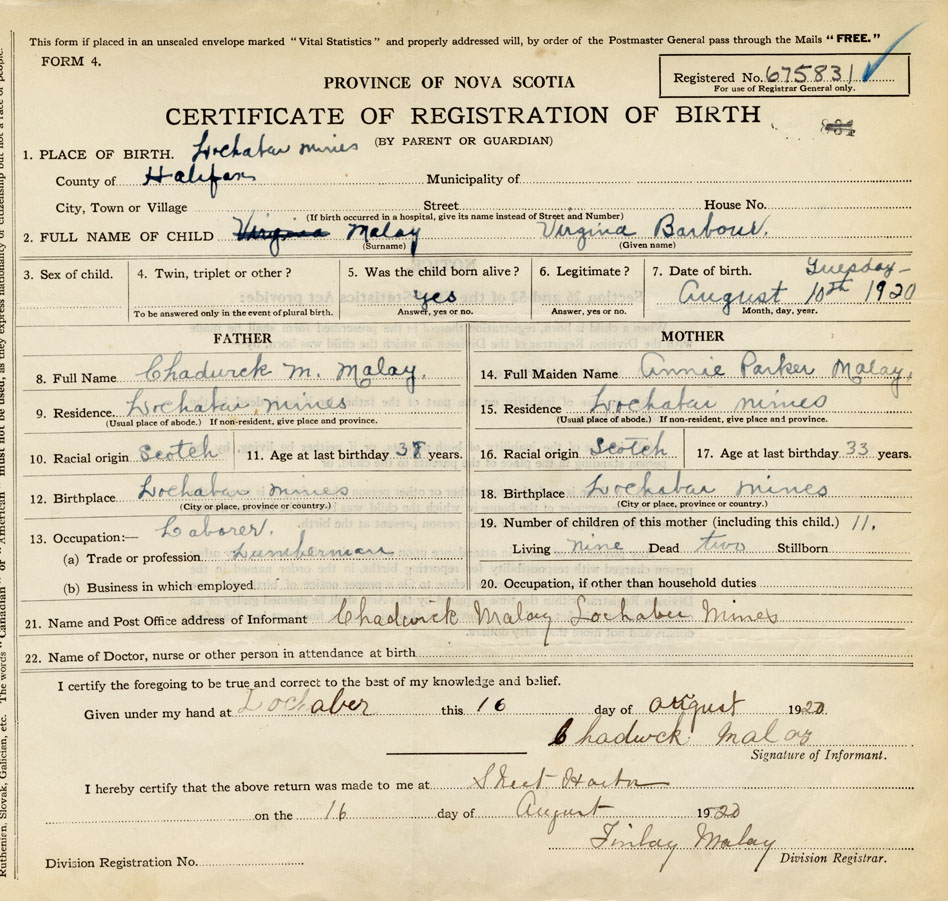 This form if placed in an unsealed envelope marked "Vital Statistics" and properly addressed will, by order of the Postmaster General pass through the Mails "FREE."
FORM 4.
Registered No. 675831
For use of Registrar General only.
PROVINCE OF NOVA SCOTIA
CERTIFICATE OF REGISTRATION OF BIRTH
(BY PARENT OR GUARDIAN)
1. PLACE OF BIRTH. Lochabar mines
County of Halifax Municipality of
City, Town or Village Street House No.
(If birth occurred in a hospital, give its name instead of Street and Number)
2. FULL NAME OF CHILD Virginia Malay Virgina Barbour.
(Surname) (Given name)
3. Sex of child. 4. Twin, triplet or other? 5. Was the child born alive? 6. Legitimate? 7. Date of birth. Tuesday-
yes August 10th 1920
To be answered only in the event of plural birth. Answer, yes or no. Answer, yes or no. Month, day, year.
FATHER
8. Full Name Chadwick M. Malay.
9. Residence. Lochabar mines
(Usual place of abode.) If non-resident, give place and province.
10. Racial origin Scotch 11. Age at last birthday 38 years.
12. Birthplace Lochabar mines
(City or place, province or country.)
13. Occupation:— Laborer.
(a) Trade or profession Lumberman
(b) Business in which employed
MOTHER
14. Full Maiden Name Annie Parker Malay.
15. Residence Lochabar mines
(Usual place of abode.) If non-resident, give place and province.
16. Racial origin Scotch 17. Age at last birthday 33 years.
18. Birthplace Lochabar mines
(City or place, province or country.)
19. Number of children of this mother (including this child.) 11.
Living nine Dead two Stillborn
20. Occupation, if other than household duties
21. Name and Post Office address of Informant Chadwick Malay Lochaber Mines
22. Name of Doctor, nurse or other person in attendance at birth
I certify the foregoing to be true and correct to the best of my knowledge and belief.
Given under my hand at Lochaber this 16 day of august 1920
Chadwick Malay
Signature of Informant.
I hereby certify that the above return was made to me at Sheet Harbor
on the 16 day of August 1920
Finlay Malay
Division Registrar.
Division Registration No.